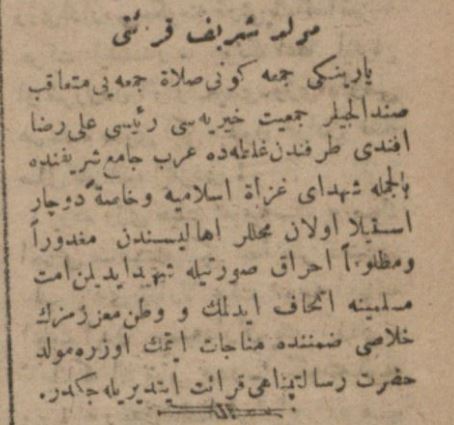 مولد شریف قرائتی
یارینكی جمعه كونی صلاة جمعه یی متعاقب
صندالجیلر جمعیت خیریه سی رئیسی علی رضا
افندی طرفندن غلطه ده عرب جامع شریفنده
بالجمله شهدای غزاة اسلامیه وخاصةً دوچار
استیلا اولان محللر اهالیسندن مغدوراً
ومظلوماً احراق صورتیله شهید ایدیلن امت
مسلمینه اتحاف ایدلمك و وطن معززمزك
خلاصی ضمننده مناجات ایتمك اوزره مولد
حضرت رسالتپناهی قرائت ایتدیریله جكدر.